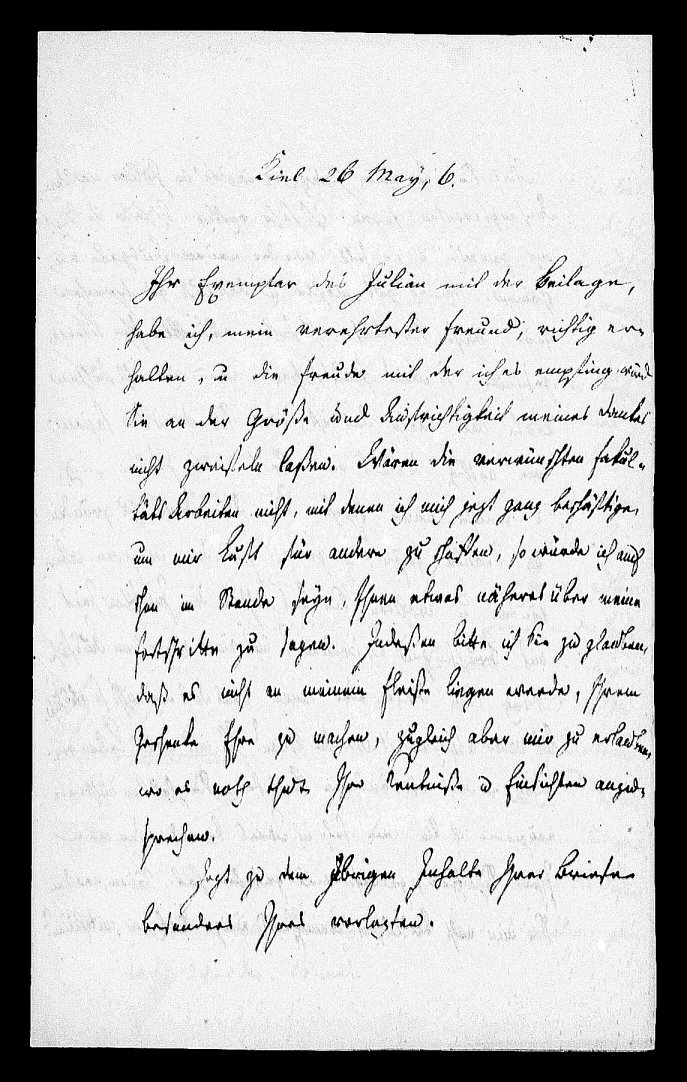 Kiel 26 May, 6.
Ihr Exemplar des Julian mit der Beilage,
habe ich, mein verehrtester Freund, richtig er-
halten, u die Freude mit der ich es empfing wird
Sie an der Größe und Aufrichtigkeit meines Dankes
nicht zweifeln laßen. Wären die verwünschten Fakul-
täts Arbeiten nicht, mit denen ich mich jezt ganz beschäftige,
um mir Lufft für andere zu schaffen, so würde ich auch
schon im Stande seyn, Ihnen etwas näheres über meine
Fortschritte zu sagen. Indeßen bitte ich Sie zu glauben,
daß es nicht an meinem Fleiße liegen werde, Ihrem
Geschenke Ehre zu machen, zugleich aber mir zu erlauben,
wo es noth thut Ihre Kentniße u Einsichten anzu-
sprechen.
Jezt zu dem übrigen Inhalte Ihres Briefes
besonders Ihres vorlezten.